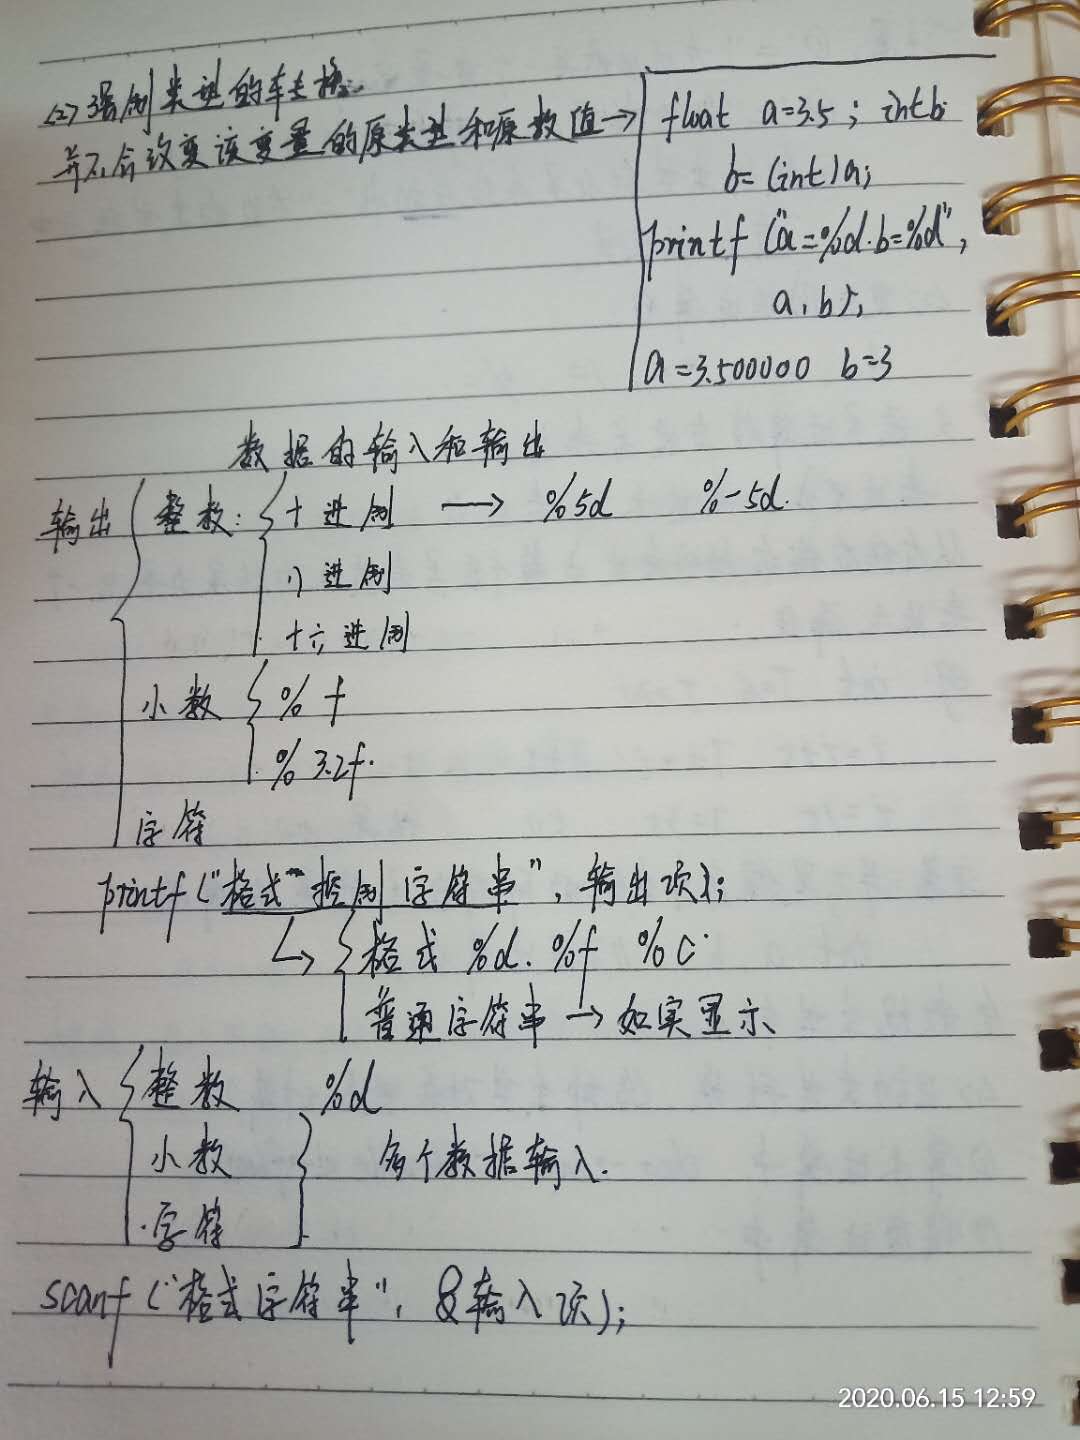 (2) 强制类型的转换.
并不会改变该变量的原类型和原数值→
float a=3.5; int b
b=(int)a;
printf("a=%d.b=%d",
a, b);
a=3.500000 b=3
数据的输入和输出
输出 整数: 十进制 → %5d %-5d.
八进制
十六进制
小数 %f
%3.2f.
字符
printf("格式控制字符串", 输出项);
↳ 格式 %d. %f %c.
普通字符串→如实显示
输入 整数 %d
小数 多个数据输入.
字符
scanf("格式字符串", &输入项);
2020.06.15 12:59